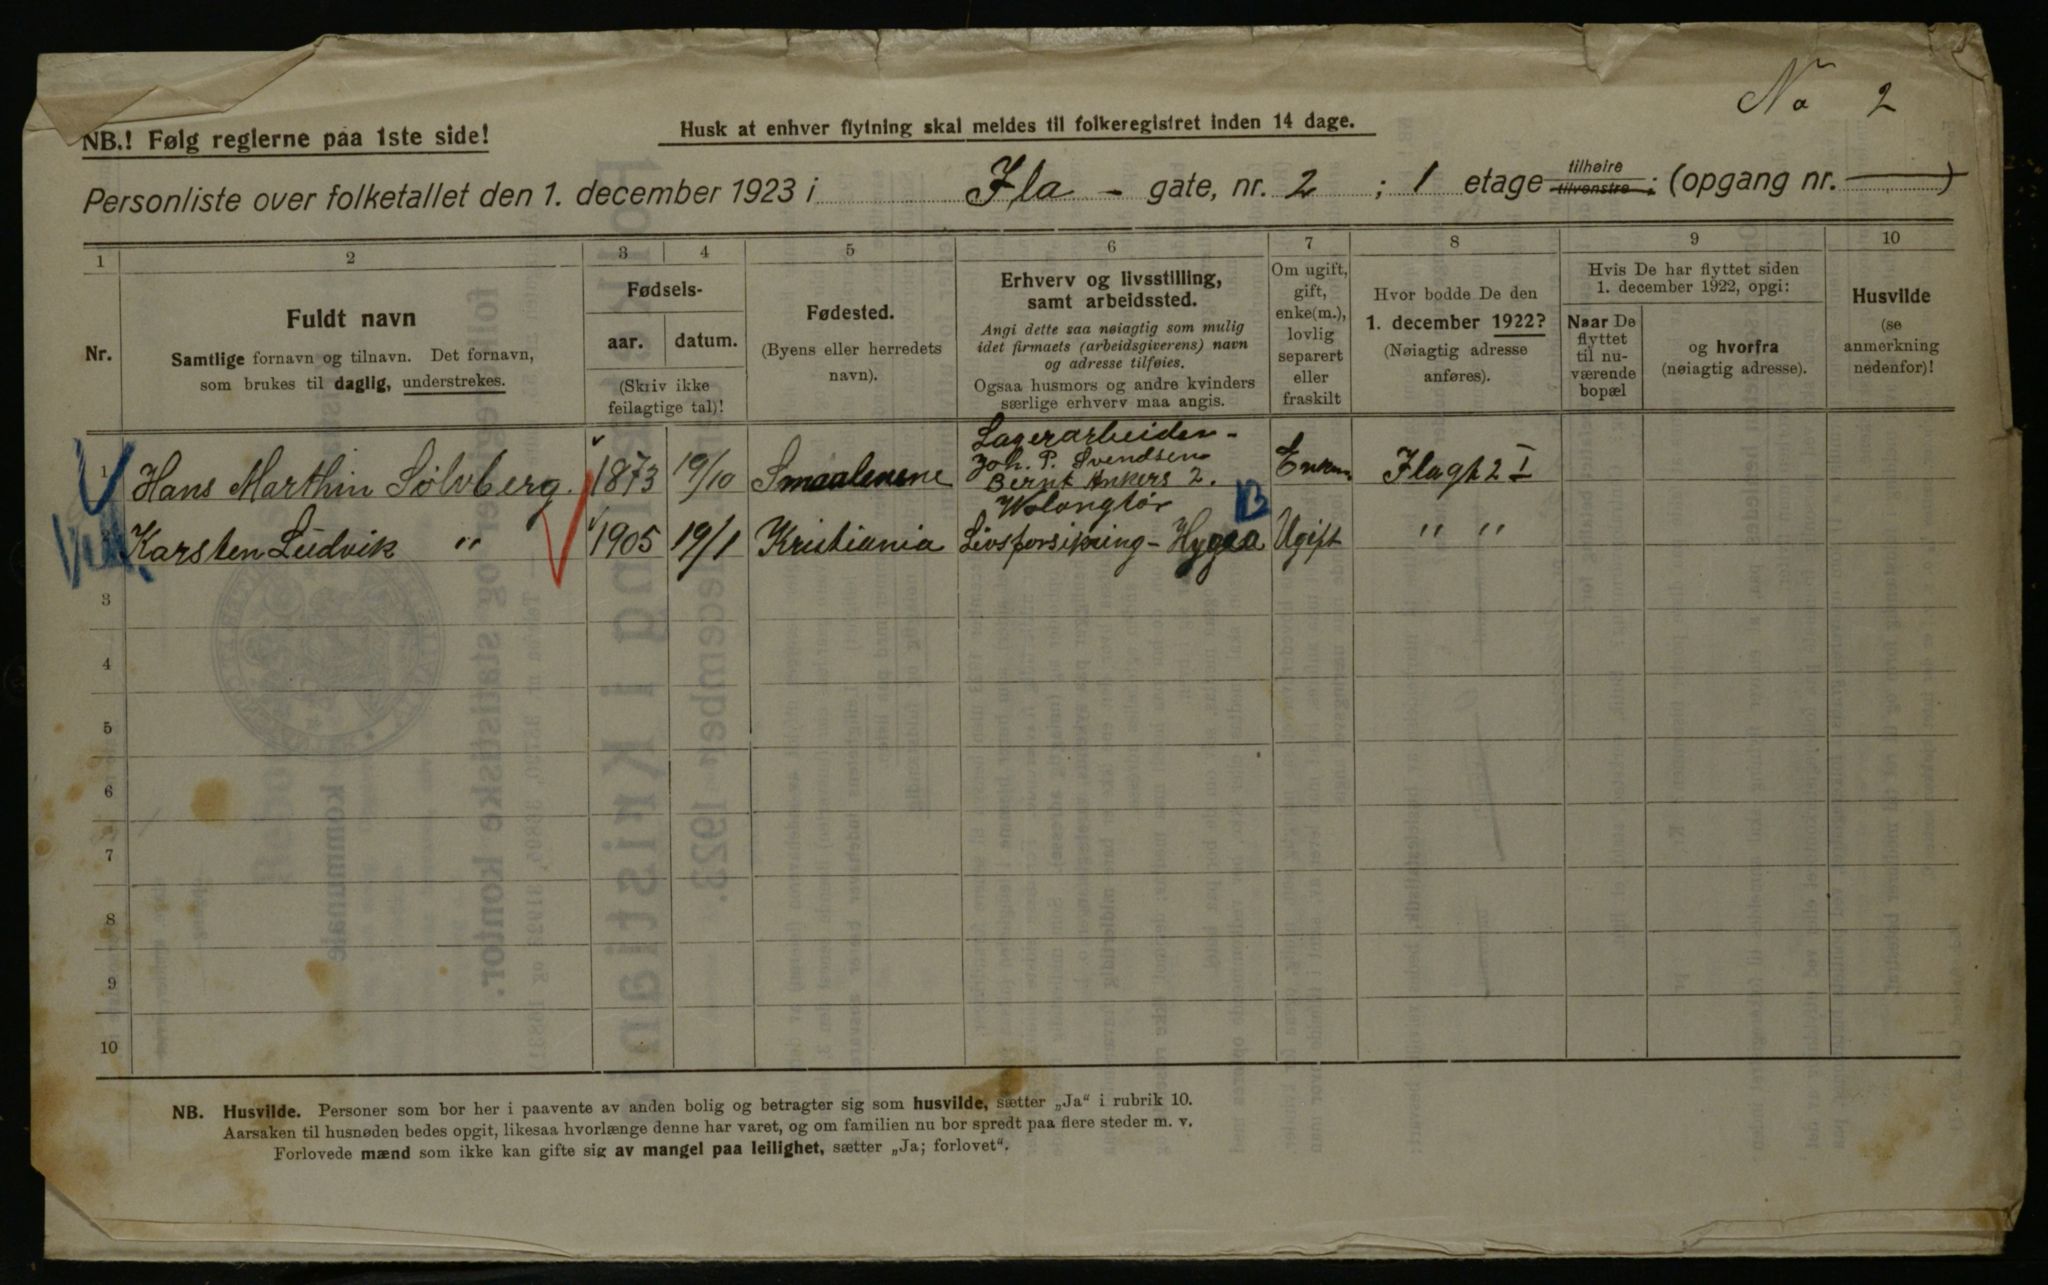 No 2
NB.! Følg reglerne paa 1ste side!
Husk at enhver flytning skal meldes til folkeregistret inden 14 dage.
Personliste over folketallet den 1. december 1923 i Ila - gate, nr. 2 ; 1 etage tilhøire tilvenstre ; (opgang nr. —)
1 2 3 4 5 6 7 8 9 10
Nr.
Fuldt navn
Samtlige fornavn og tilnavn. Det fornavn,
som brukes til daglig, understrekes.
Fødsels-
aar. datum.
(Skriv ikke
feilagtige tal)!
Fødested.
(Byens eller herredets
navn).
Erhverv og livsstilling,
samt arbeidssted.
Angi dette saa nøiagtig som mulig
idet firmaets (arbeidsgiverens) navn
og adresse tilføies.
Ogsaa husmors og andre kvinders
særlige erhverv maa angis.
Om ugift,
gift,
enke(m.),
lovlig
separert
eller
fraskilt
Hvor bodde De den
1. december 1922?
(Nøiagtig adresse
anføres).
Hvis De har flyttet siden
1. december 1922, opgi:
Naar De
flyttet
til nu-
værende
bopæl
og hvorfra
(nøiagtig adresse).
Husvilde
(se
anmerkning
nedenfor)!
Lagerarbeider -
Joh. P. Svendsen
1 Hans Marthin Sølvberg. 1873 19/10 Smaalenene Bernt Ankers 2. Enkem Ilagt 2 I
Karsten Ludvik " 1905 19/1 Kristiania Livsforsikring - Hygea Ugift " "
3
4
5
6
7
8
9
10
NB. Husvilde. Personer som bor her i paavente av anden bolig og betragter sig som husvilde, sætter „Ja“ i rubrik 10.
Aarsaken til husnøden bedes opgit, likesaa hvorlænge denne har varet, og om familien nu bor spredt paa flere steder m. v.
Forlovede mænd som ikke kan gifte sig av mangel paa leilighet, sætter „Ja; forlovet“.